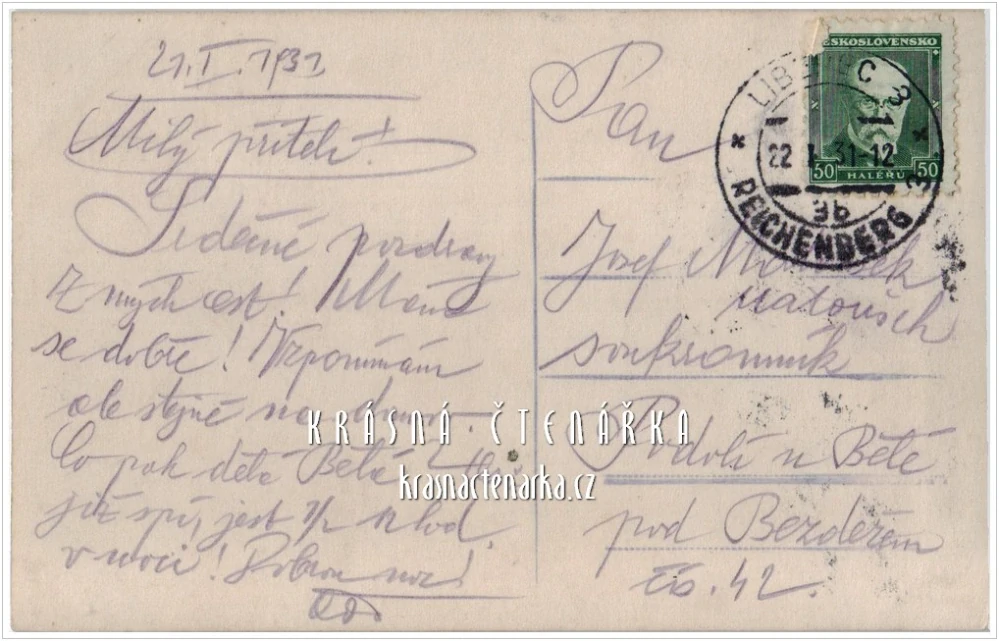 21.I.1931
Milý příteli!
Srdečné pozdravy
z mých cest! Mám
se dobře! Vzpomínám
ale stejně na domov.
Co pak dělá Běta
již spí, jest 1/2 12 hod.
v noci! Dobrou noc!
Pan
Josef
Matoušek
soukromník
Podolí u Bělé
pod Bezdězem
čís. 42.
ČESKOSLOVENSKO
50 HALÉŘŮ 50
LIBEREC 3
22 I 31-12
3b
REICHENBERG 3
KRÁSNÁ ČTENÁŘKA
krasnactenarka.cz